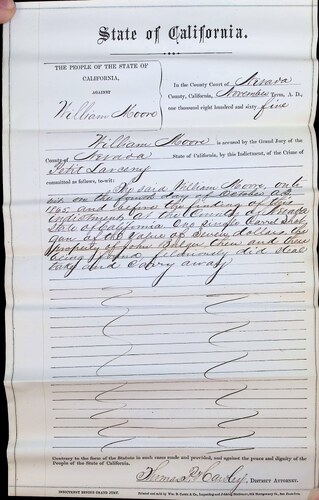 State of California.
THE PEOPLE OF THE STATE OF
CALIFORNIA,
AGAINST
William Moore
In the County Court of Nevada
County, California, November Term, A. D.,
one thousand eight hundred and sixty five
William Moore is accused by the Grand Jury of the
County of Nevada State of California, by this Indictment, of the Crime of
Petit Larceny
committed as follows, to-wit: The said William Moore, on to
wit on the fourth day of October AD
1865 and before the finding of this
indictment at the County of Nevada
State of California One single barrel Shot
gun of the value of Seven dollars the
property of John then and there
being found, feloniously did steal
take and carry away
Contrary to the form of the Statute in such cases made and provided, and against the peace and dignity of the
People of the State of California.
Thomas P Hawley, DISTRICT ATTORNEY.
INDICTMENT BEFORE GRAND JURY.